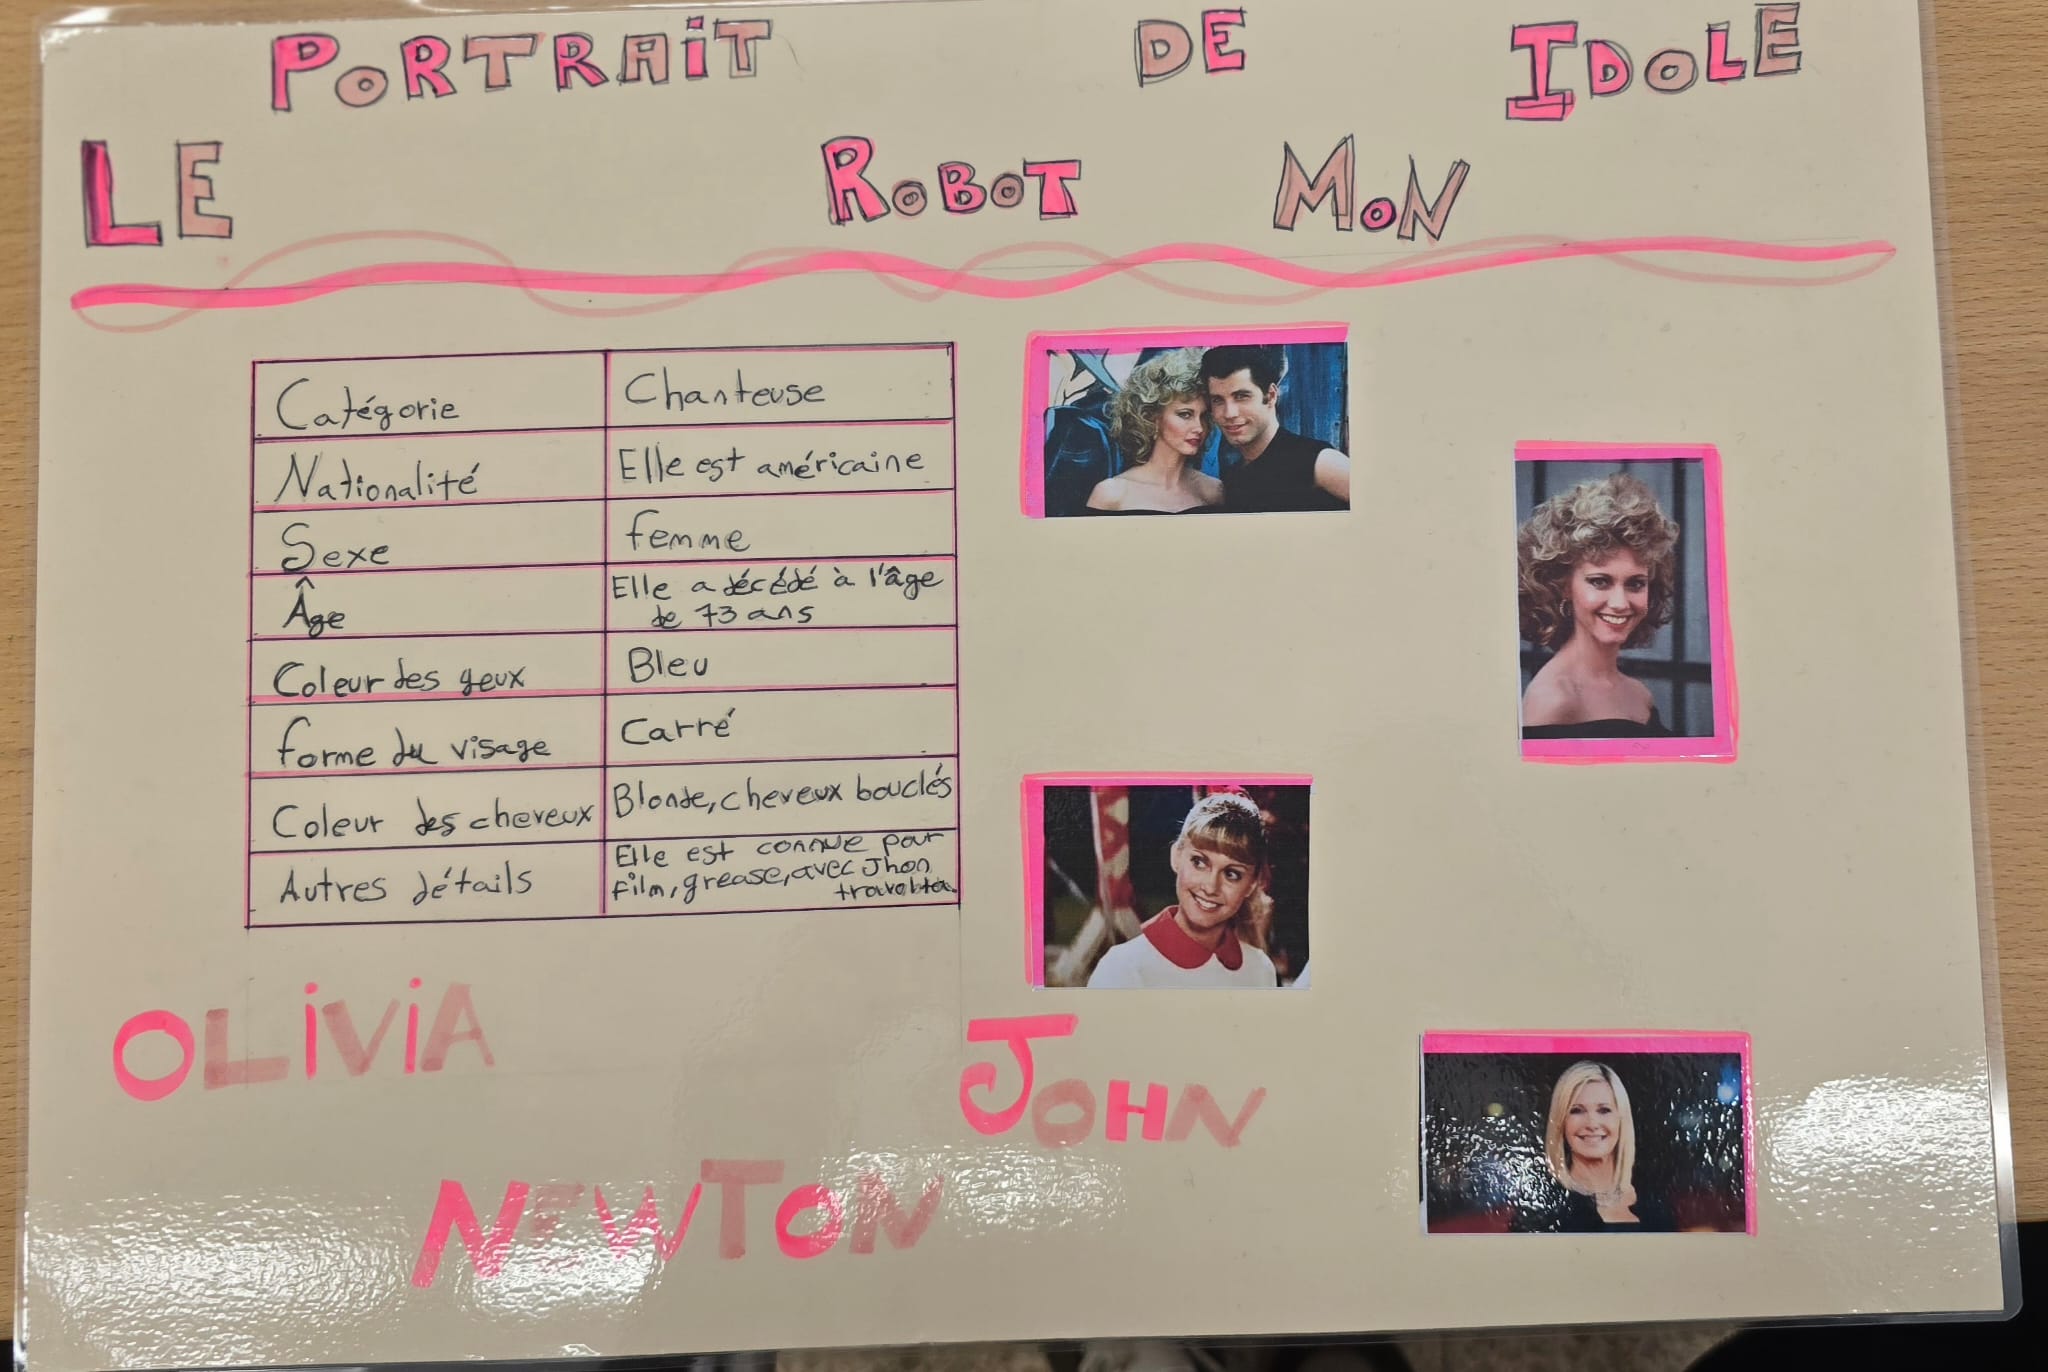 LE PORTRAIT ROBOT DE MON IDOLE
Catégorie
Chanteuse
Nationalité
Elle est américaine
Sexe
femme
Âge
Elle a décédé à l'âge
de 73 ans
Coleur des yeux
Bleu
forme du visage
Carré
Coleur des cheveux
Blonde, cheveux bouclés
Autres détails
Elle est connue par
film, grease, avec Jhon
travolta.
OLIVIA
NEWTON
JOHN